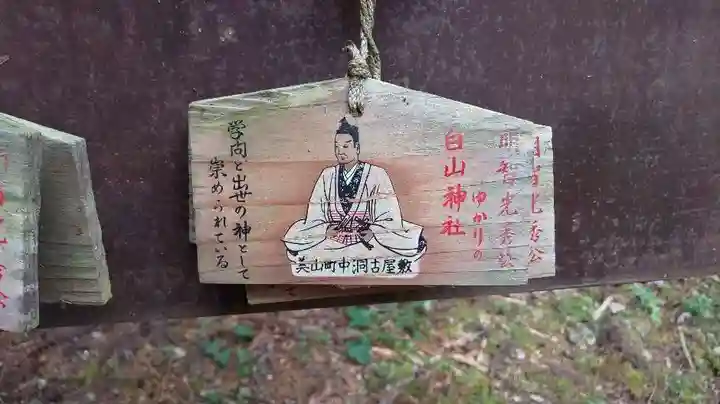 明智光秀公
ゆかりの
白山神社
美山町中洞古屋敷
学問と出世の神として
崇められている